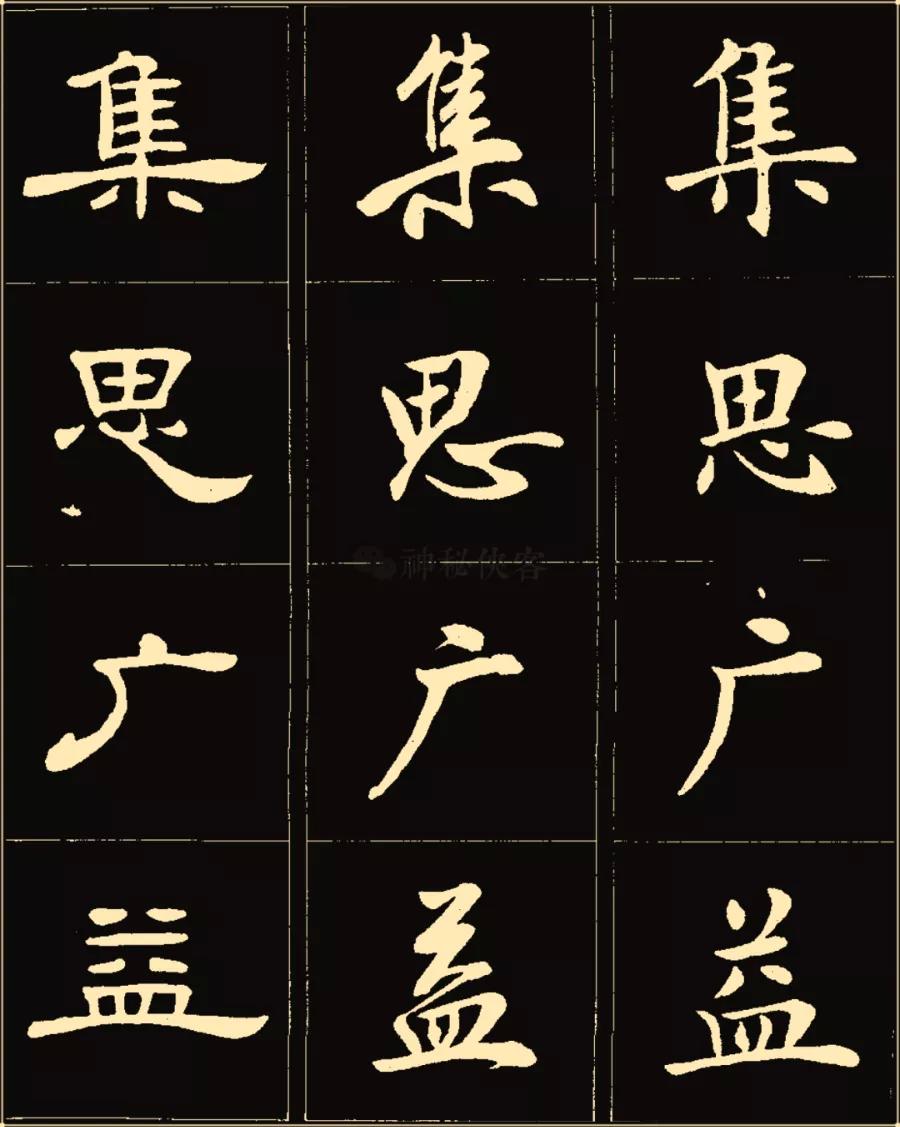 集 集 集
思 思 思
广 广 广
益 益 益
神秘侠客